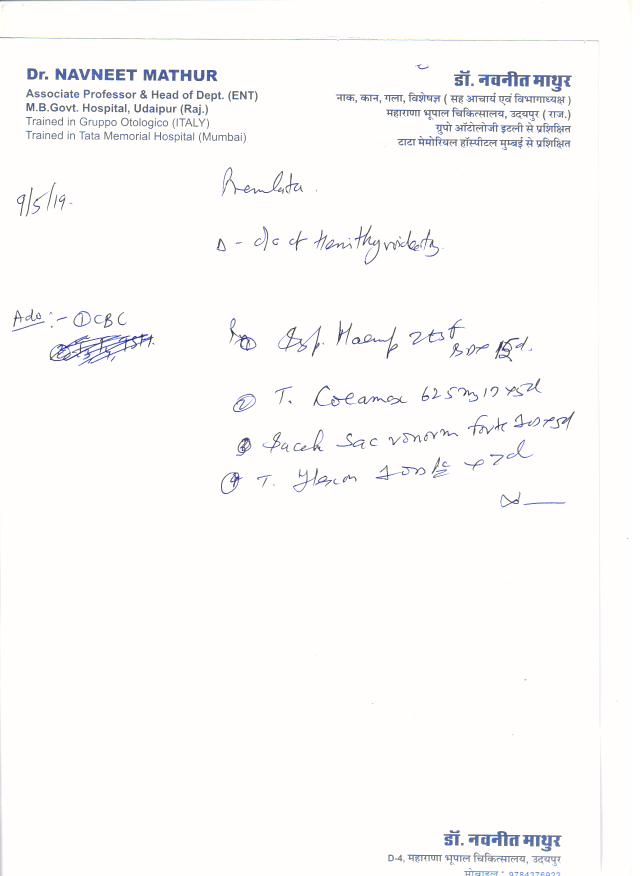 Dr. NAVNEET MATHUR
Associate Professor & Head of Dept. (ENT)
M.B.Govt. Hospital, Udaipur (Raj.)
Trained in Gruppo Otologico (ITALY)
Trained in Tata Memorial Hospital (Mumbai)
डॉ. नवनीत माथुर
नाक, कान, गला, विशेषज्ञ ( सह आचार्य एवं विभागाध्यक्ष )
महाराणा भूपाल चिकित्सालय, उदयपुर ( राज.)
ग्रुपो ऑटोलोजी इटली से प्रशिक्षित
टाटा मेमोरियल हॉस्पीटल मुम्बई से प्रशिक्षित
9/5/19.
Premlata.
Δ - c/o of Hemithyroidectomy
Adv :- ① CBC
① Syp. 2tsf
BD x 15d.
② T. 625mg x 5d
③ Sac vonorm forte x 5d
④ T. x 7d
डॉ. नवनीत माथुर
D-4, महाराणा भूपाल चिकित्सालय, उदयपुर
मोबाइल : 9784376922